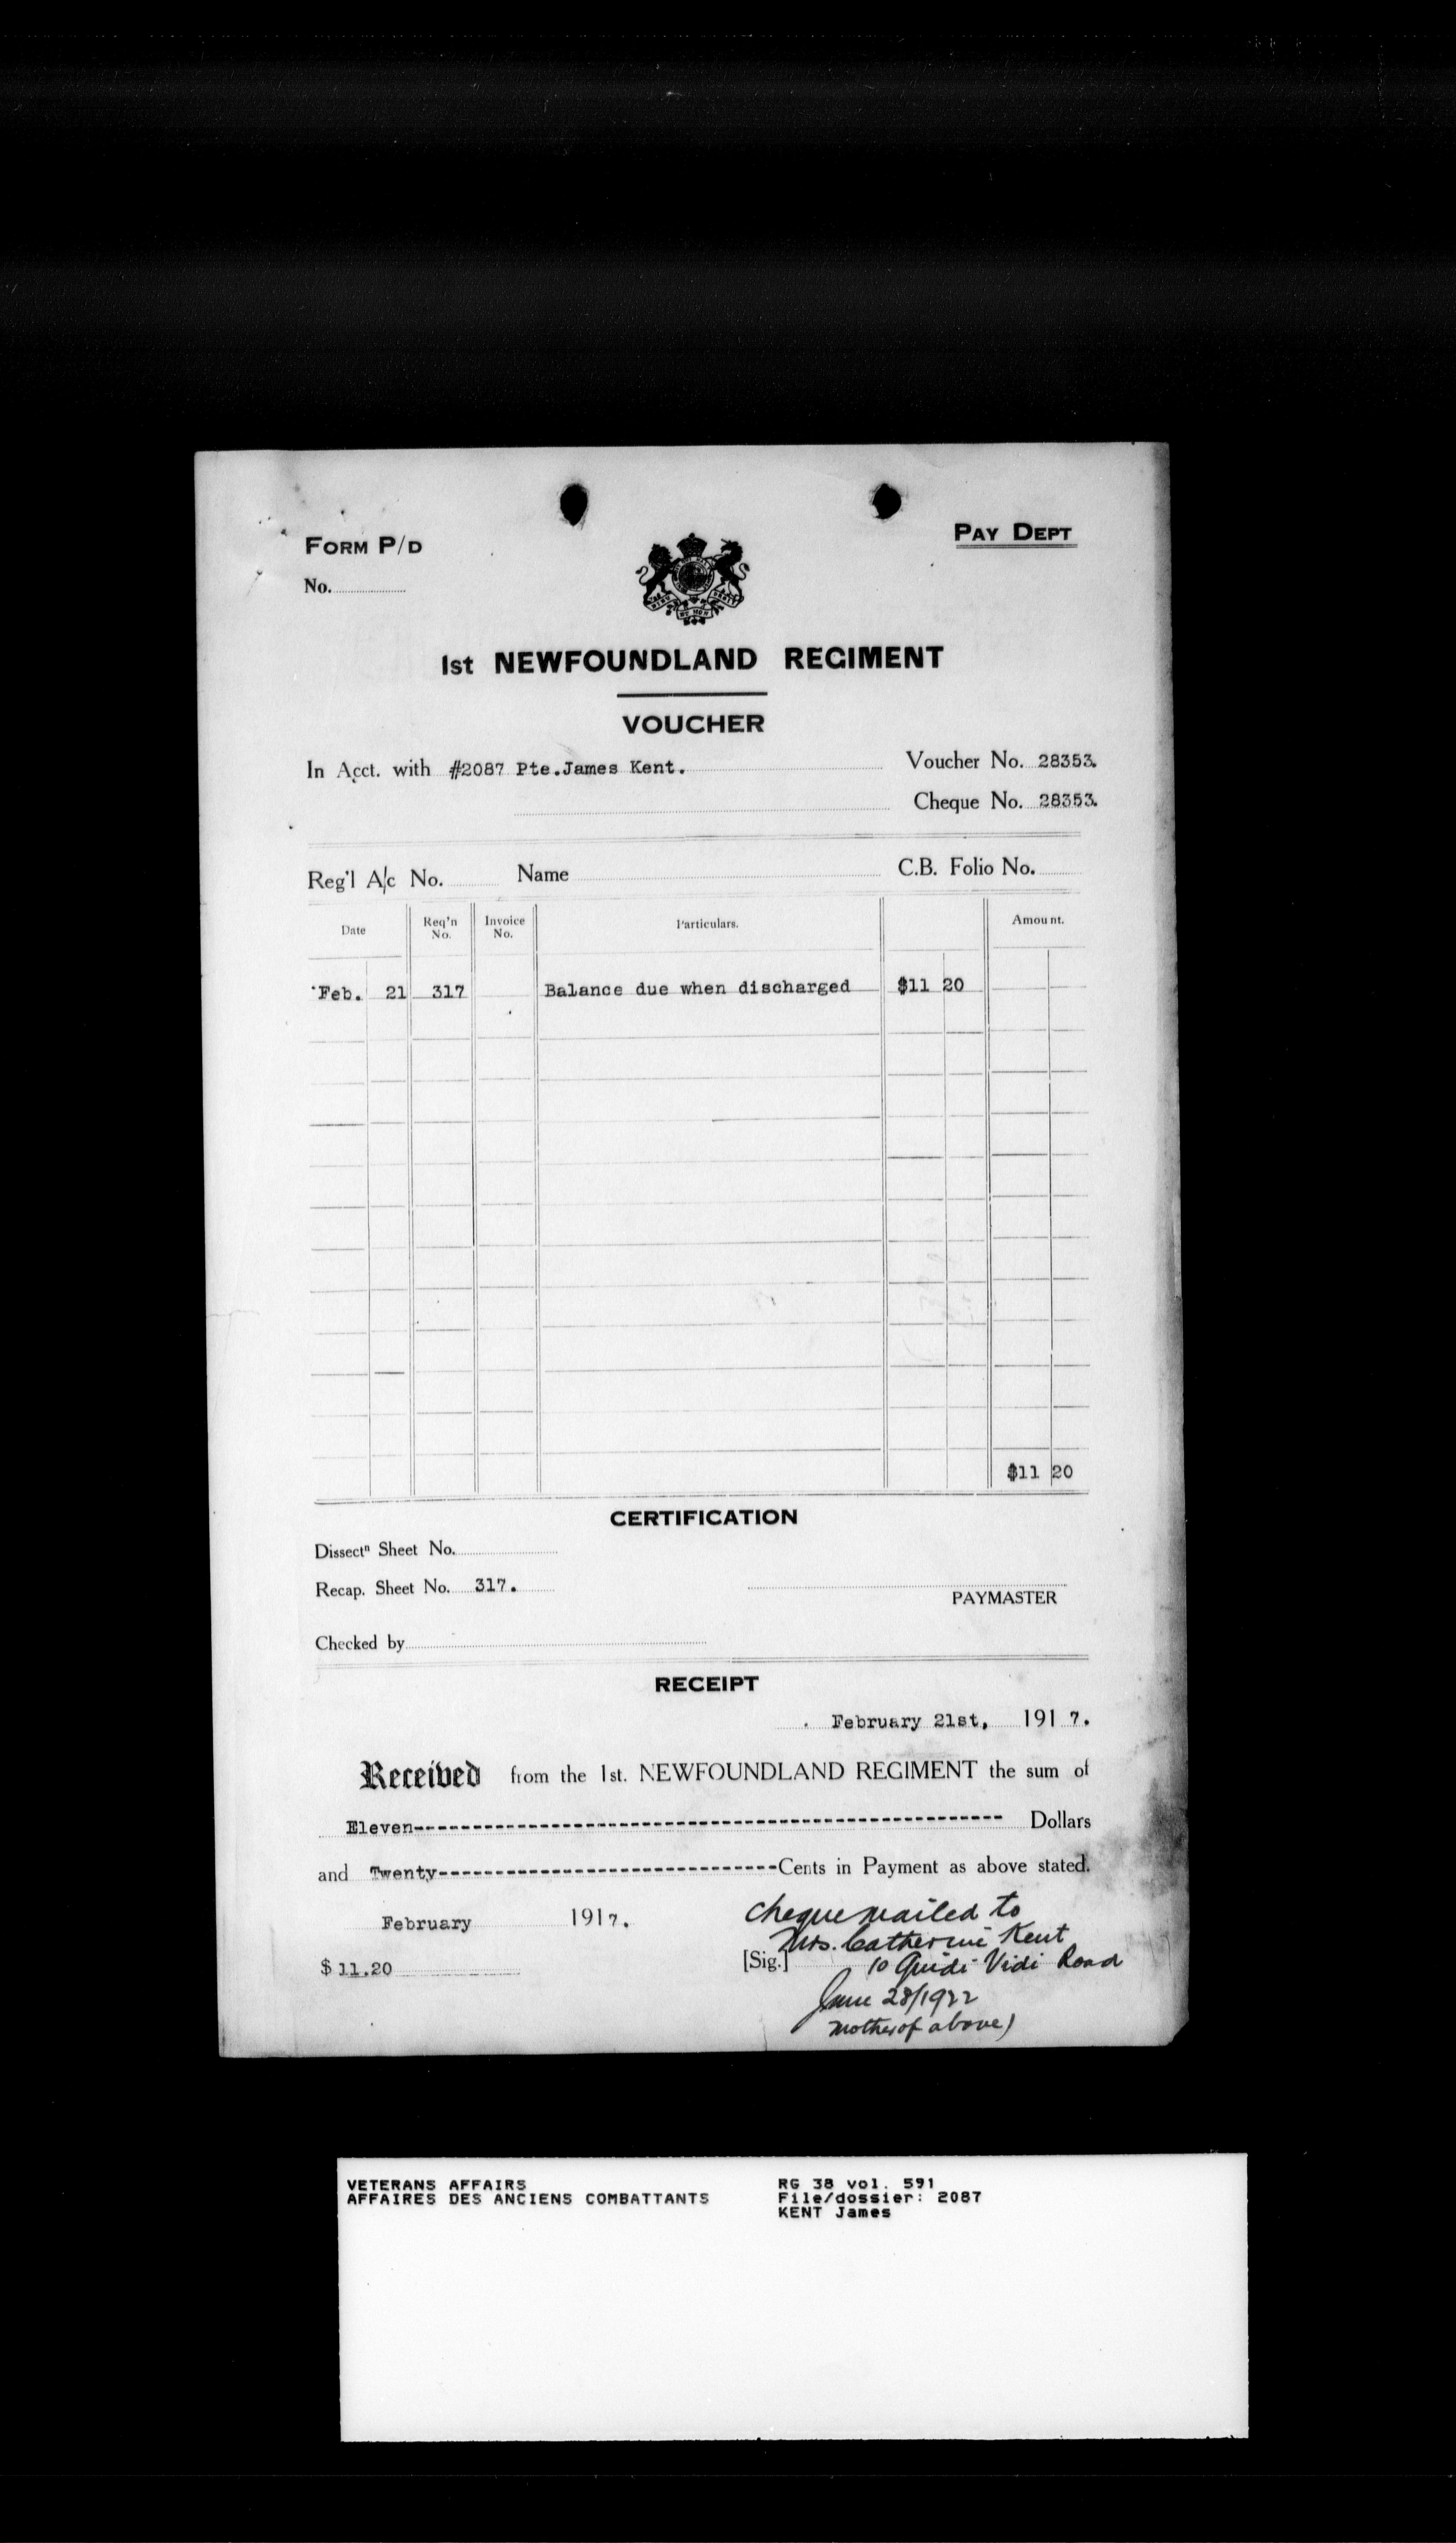 FORM P/D
PAY DEPT
No.
1st NEWFOUNDLAND REGIMENT
VOUCHER
In Acct. with #2087 Pte.James Kent.
Voucher No. 28353.
Cheque No. 28353.
Reg'l A/c No. Name C.B. Folio No.
Date Req'n No. Invoice No. Particulars. Amount.
Feb. 21 317 Balance due when discharged $11 20
$11 20
CERTIFICATION
Dissectn Sheet No.
Recap. Sheet No. 317.
PAYMASTER
Checked by
RECEIPT
February 21st, 1917.
Received from the 1st. NEWFOUNDLAND REGIMENT the sum of
Eleven------------------------------------------------------ Dollars
and Twenty------------------------------Cents in Payment as above stated.
February 1917.
cheque mailed to
Mrs. Catherine Kent
$ 11.20
[Sig.] 10 Quidi Vidi Road
June 28/1922
mother of above)
VETERANS AFFAIRS
AFFAIRES DES ANCIENS COMBATTANTS
RG 38 vol. 591
File/dossier: 2087
KENT James